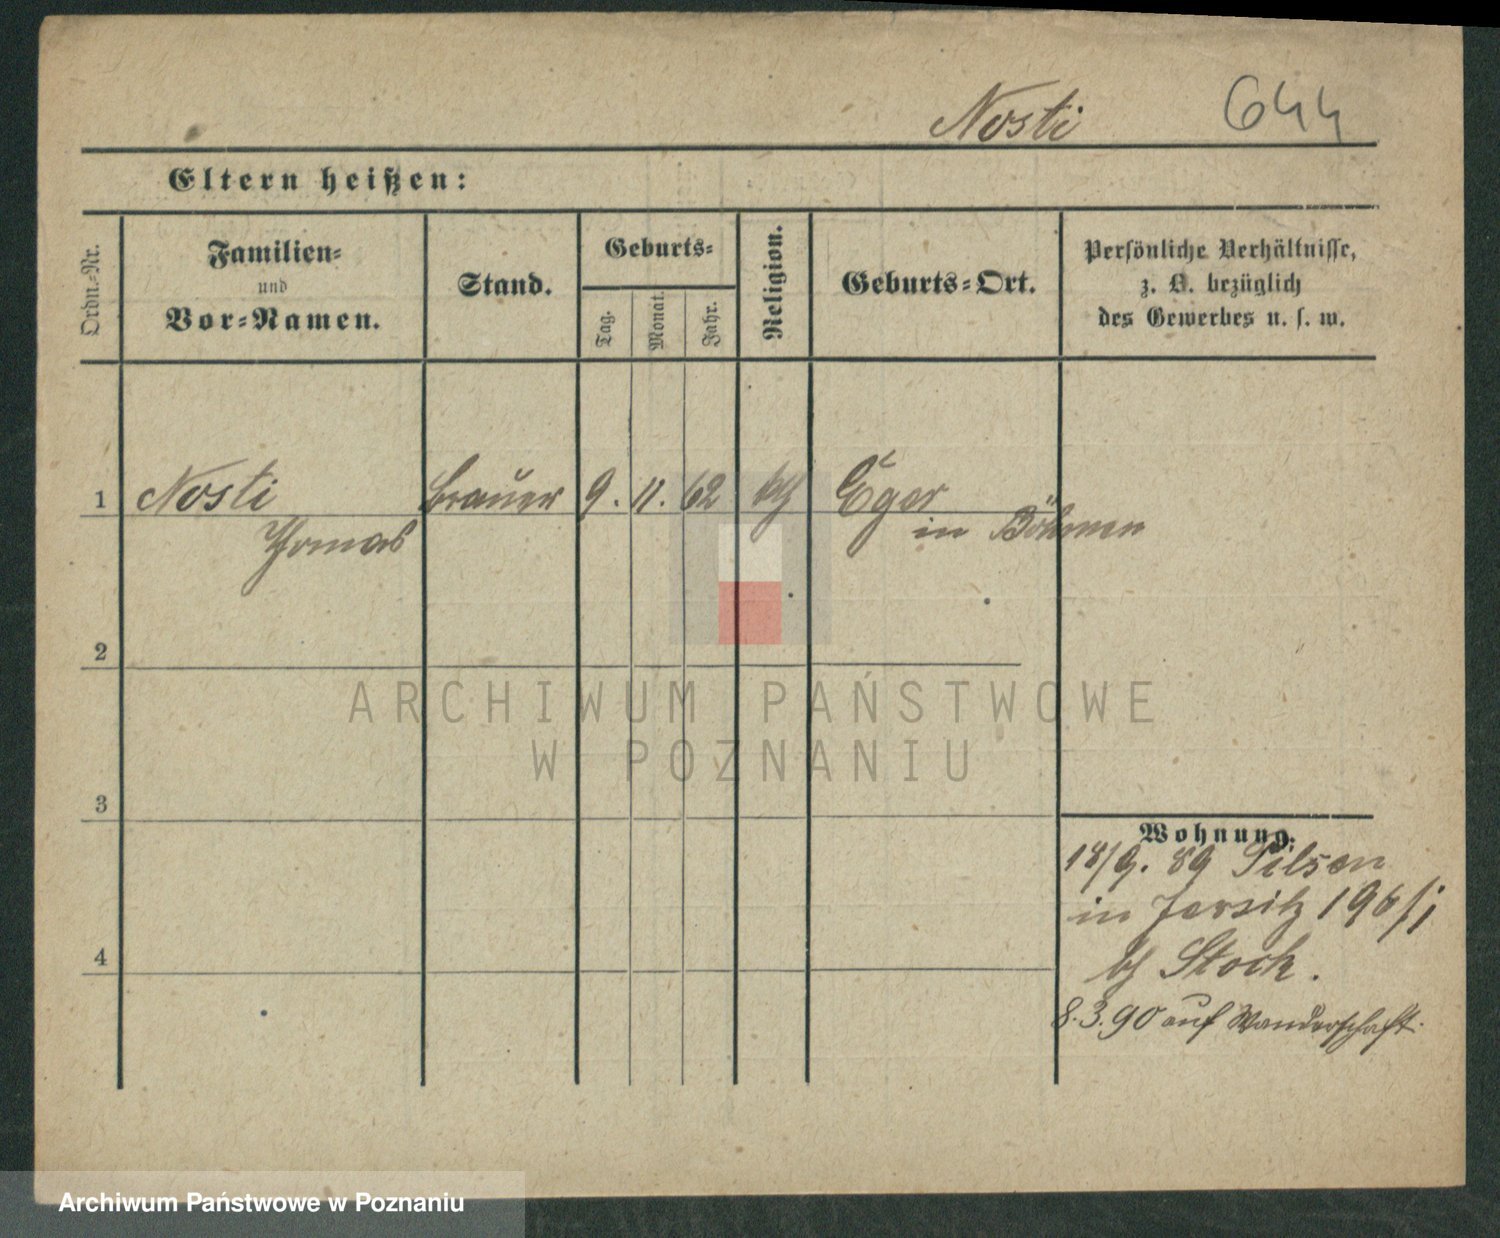 Nosti 644
Eltern heißen:
Ordn.-Nr.
Familien-
und
Vor-Namen.
Stand.
Geburts-
Tag.
Monat.
Jahr.
Religion.
Geburts-Ort.
Persönliche Verhältnisse,
z. B. bezüglich
des Gewerbes u. s. w.
1 Nosti Brauer 9. 11. 62 kth Eger
Thomas in Böhmen
2
3
4
Wohnung.
18/9. 89 Pilsen
in Jersitz 196/i
by Stock.
8.3.90 auf Wanderschaft.
ARCHIWUM PAŃSTWOWE
W POZNANIU
Archiwum Państwowe w Poznaniu